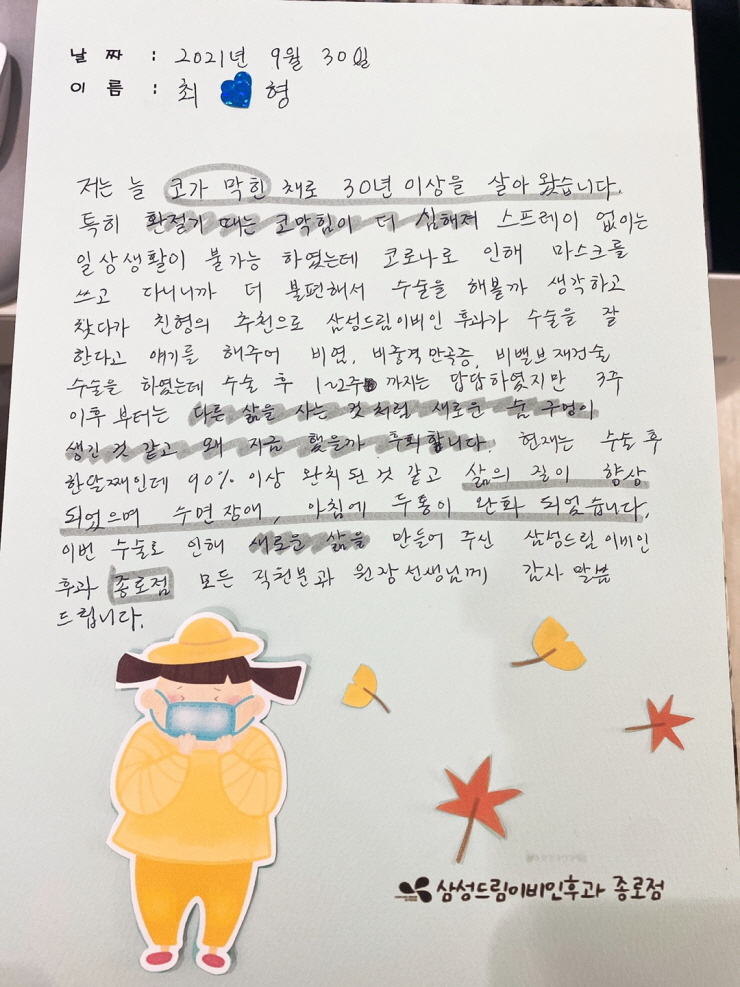 날 짜 : 2021년 9월 30일
이 름 : 최 형
저는 늘 코가 막힌 채로 30년 이상을 살아 왔습니다.
특히 환절기 때는 코막힘이 더 심해져 스프레이 없이는
일상생활이 불가능 하였는데 코로나로 인해 마스크를
쓰고 다니니까 더 불편해서 수술을 해볼까 생각하고
찾다가 친형의 추천으로 삼성드림이비인 후과가 수술을 잘
한다고 얘기를 해주어 비염, 비중격 만곡증, 비밸브재건술
수술을 하였는데 수술 후 1~2주 까지는 답답하였지만 3주
이후 부터는 다른 삶을 사는 것 처럼 새로운 숨구멍이
생긴 것 같고 왜 지금 했을까 후회합니다. 현재는 수술 후
한달 째인데 90% 이상 완치 된 것 같고 삶의 질이 향상
되었으며 수면 장애, 아침에 두통이 완화 되었습니다.
이번 수술로 인해 새로운 삶을 만들어 주신 삼성드림 이비인
후과 종로점 모든 직원분과 원장선생님께 감사 말씀
드립니다.
삼성드림이비인후과 종로점